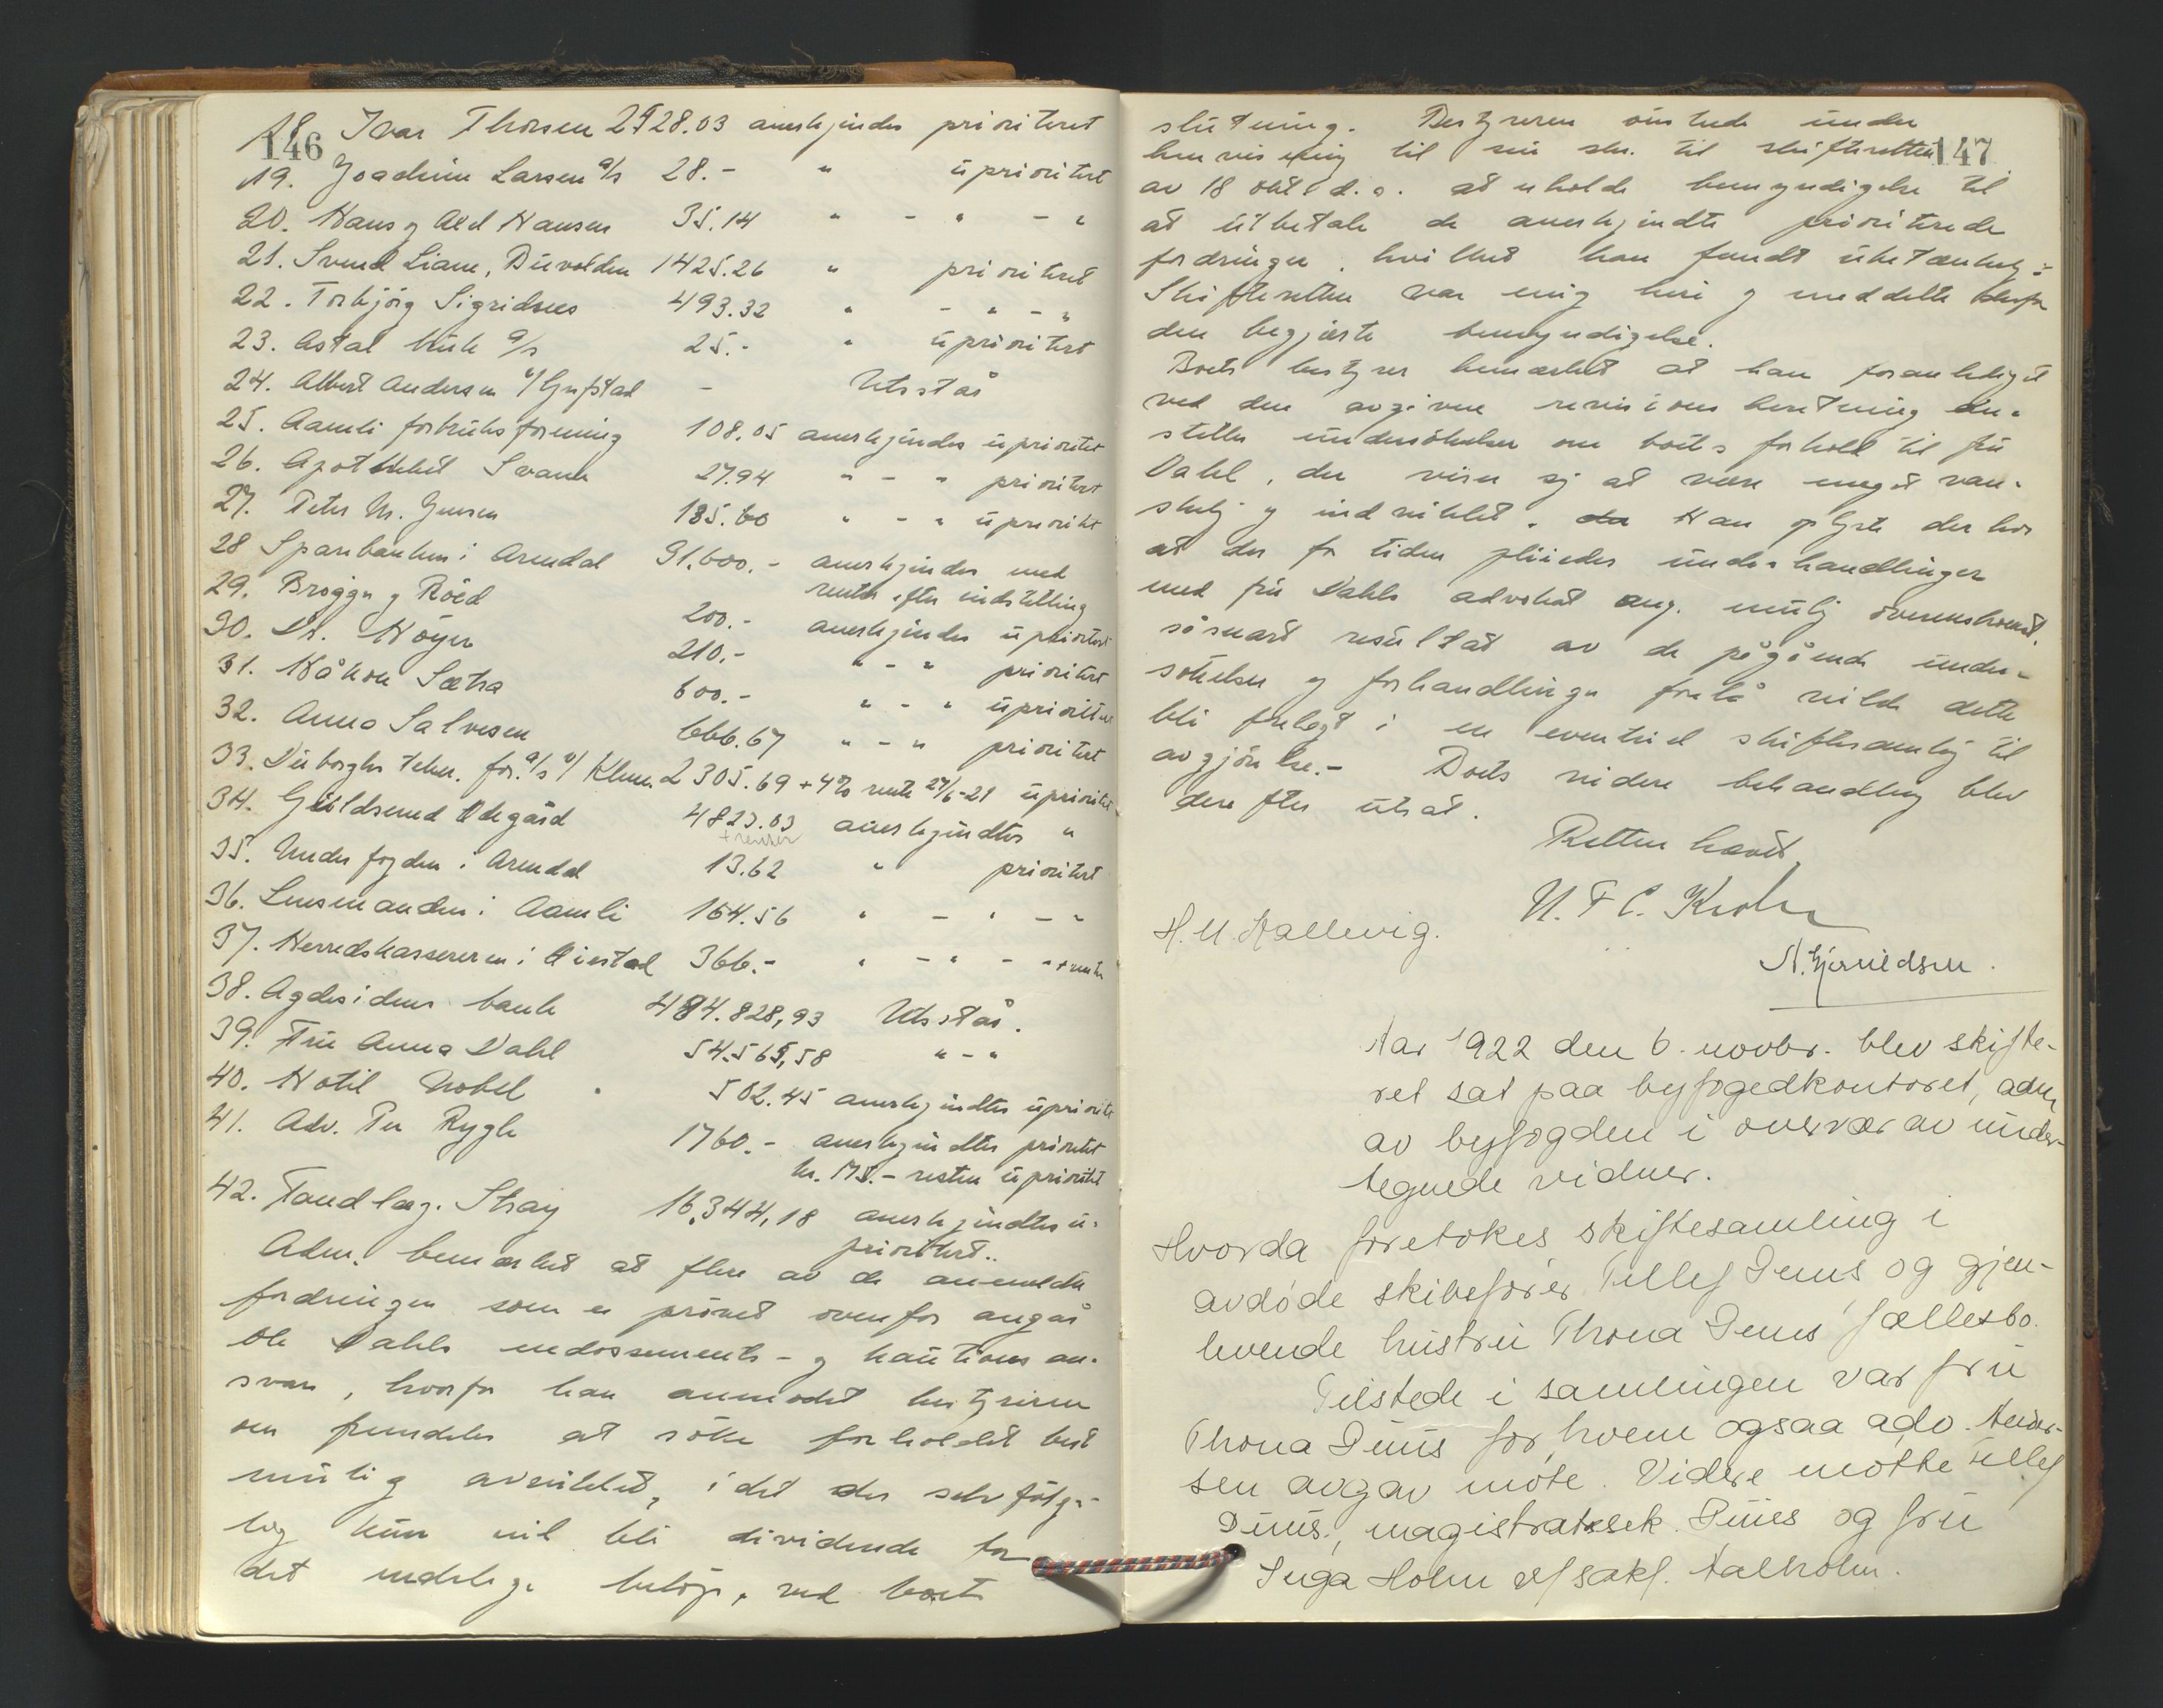 146
18. Ivar Thorsen 2928.03 anerkjendes prioritert
19. Joachim Larsen a/s 28.- " uprioritert
20. Hans og Axel Hansen 35.14 " - " - "
21. Svend Liane, Duvolden 1425.26 " prioritert
22. Torbjörg Sigridsnes 493.32 " - " - "
23. Astal bruk a/s 25.- " uprioritert
24. Albert Andersen v/ Gustad - Utstår
25. Aamli forbruksforening 108.05 anerkjendes uprioritert
26. Apotheket Svane 27.94 " - " prioritert
27. Peter M. Jensen 185.60 " - " uprioritert
28 Sparebanken i Arendal 91.600.- anerkjendes med
renter efter indstilling
29. Brögger og Röed 200.- anerkjendes uprioritert
30. Dr. Höyer 210.- " - " prioritert
31. Håkon Sætra 600.- " - " uprioritert
32. Anna Salvesen 666.67 " - " prioritert
33. Duborghs tekn. for. a/s v/ Klem. 2305.69 + 4% rente 27/6-21 uprioritert
34. Guldsmed Ødegård 4823.03 anerkjendtes "
+ renter
35. Underfogden i Arendal 13.62 " prioritert
36. Lensmanden i Aamli 164.56 " - " - "
37. Herredskassereren i Öiestad 366.- " - " - " + renter
38. Agdesidens bank 484.828,93 Utstår.
39. Fru Anna Dahl 54.565,58 " - "
40. Hotil Nobel 502.45 anerkjendtes uprioritert
41. Adv. Per Rygh 1760.- anerkjendtes prioritert
kr. 175.- resten uprioritert
42. Tandlæg. Stray 16.344,18 anerkjendtes u-
prioritert.
Adm. bemærket at flere av de anmeldte
fordringer som er prövet ovenfor angår
Ole Dahls endossements- og kautions an-
svar, hvorfor han anmodet bestyreren
om fremdeles at söke forholdet best
mulig avviklet, idet der selvfölge-
lig kun vil bli dividende for
det endelige belöp, ved boets
147
slutning. Bestyreren önskede under
henvisning til sin skr. til skifteretten
av 18 oktb d.å. at erholde bemyndigelse til
at utbetale de anerkjendte prioriterede
fordringer, hvilket han fandt ubetænkelig.
Skifteretten var enig heri og meddelte derfor
den begjærte bemyndigelse.
Boets bestyrer bemærket at han foranlediget
ved den avgivne revisions beretning an-
stiller undersökelser om boets forhold til fru
Dahl, der viser sig at være meget van-
skelig og indviklet. Han oplyste derhos
at der for tiden pleiedes underhandlinger
med fru Dahls advokat ang. mulig overenskomst.
såsnart resultat av de pågående under-
sökelser og forhandlinger forelå vilde dette
bli forelagt i en eventuel skiftesamling til
avgjörelse.- Boets videre behandling blev
derefter utsat.
Retten hævet,
N. F C. Krohn
H. M. Hallevig.
N. Gjeruldsen.
Aar 1922 den 6. novbr. blev skifte-
ret sat paa byfogedkontoret, adm.
av byfogden i overvær av under-
tegnede vidner.
Hvorda foretokes skiftesamling i
avdöde skibsförer Tellef Duus og gjen-
levende hustru Thora Duus' fællesbo.
Tilstede i samlingen var fru
Thora Duus for hvem ogsaa adv. Ander-
sen avgav möte. Videre mötte Tellef
Duus, magistratssek. Duus og fru
Inga Holm v/ sakf. Aalholm.